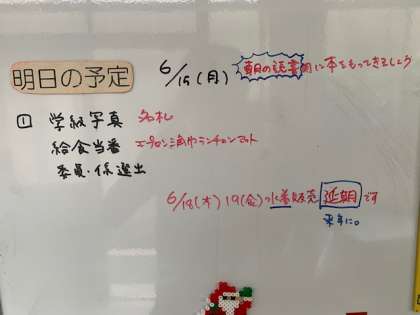 明日の予定
6/15(月) 朝の読書用に本をもってきましょう
① 学級写真 名札
給食当番 エプロン三角巾ランチョンマット
委員・係選出
6/18(木) 19(金)の水着販売 延期です
来年に。